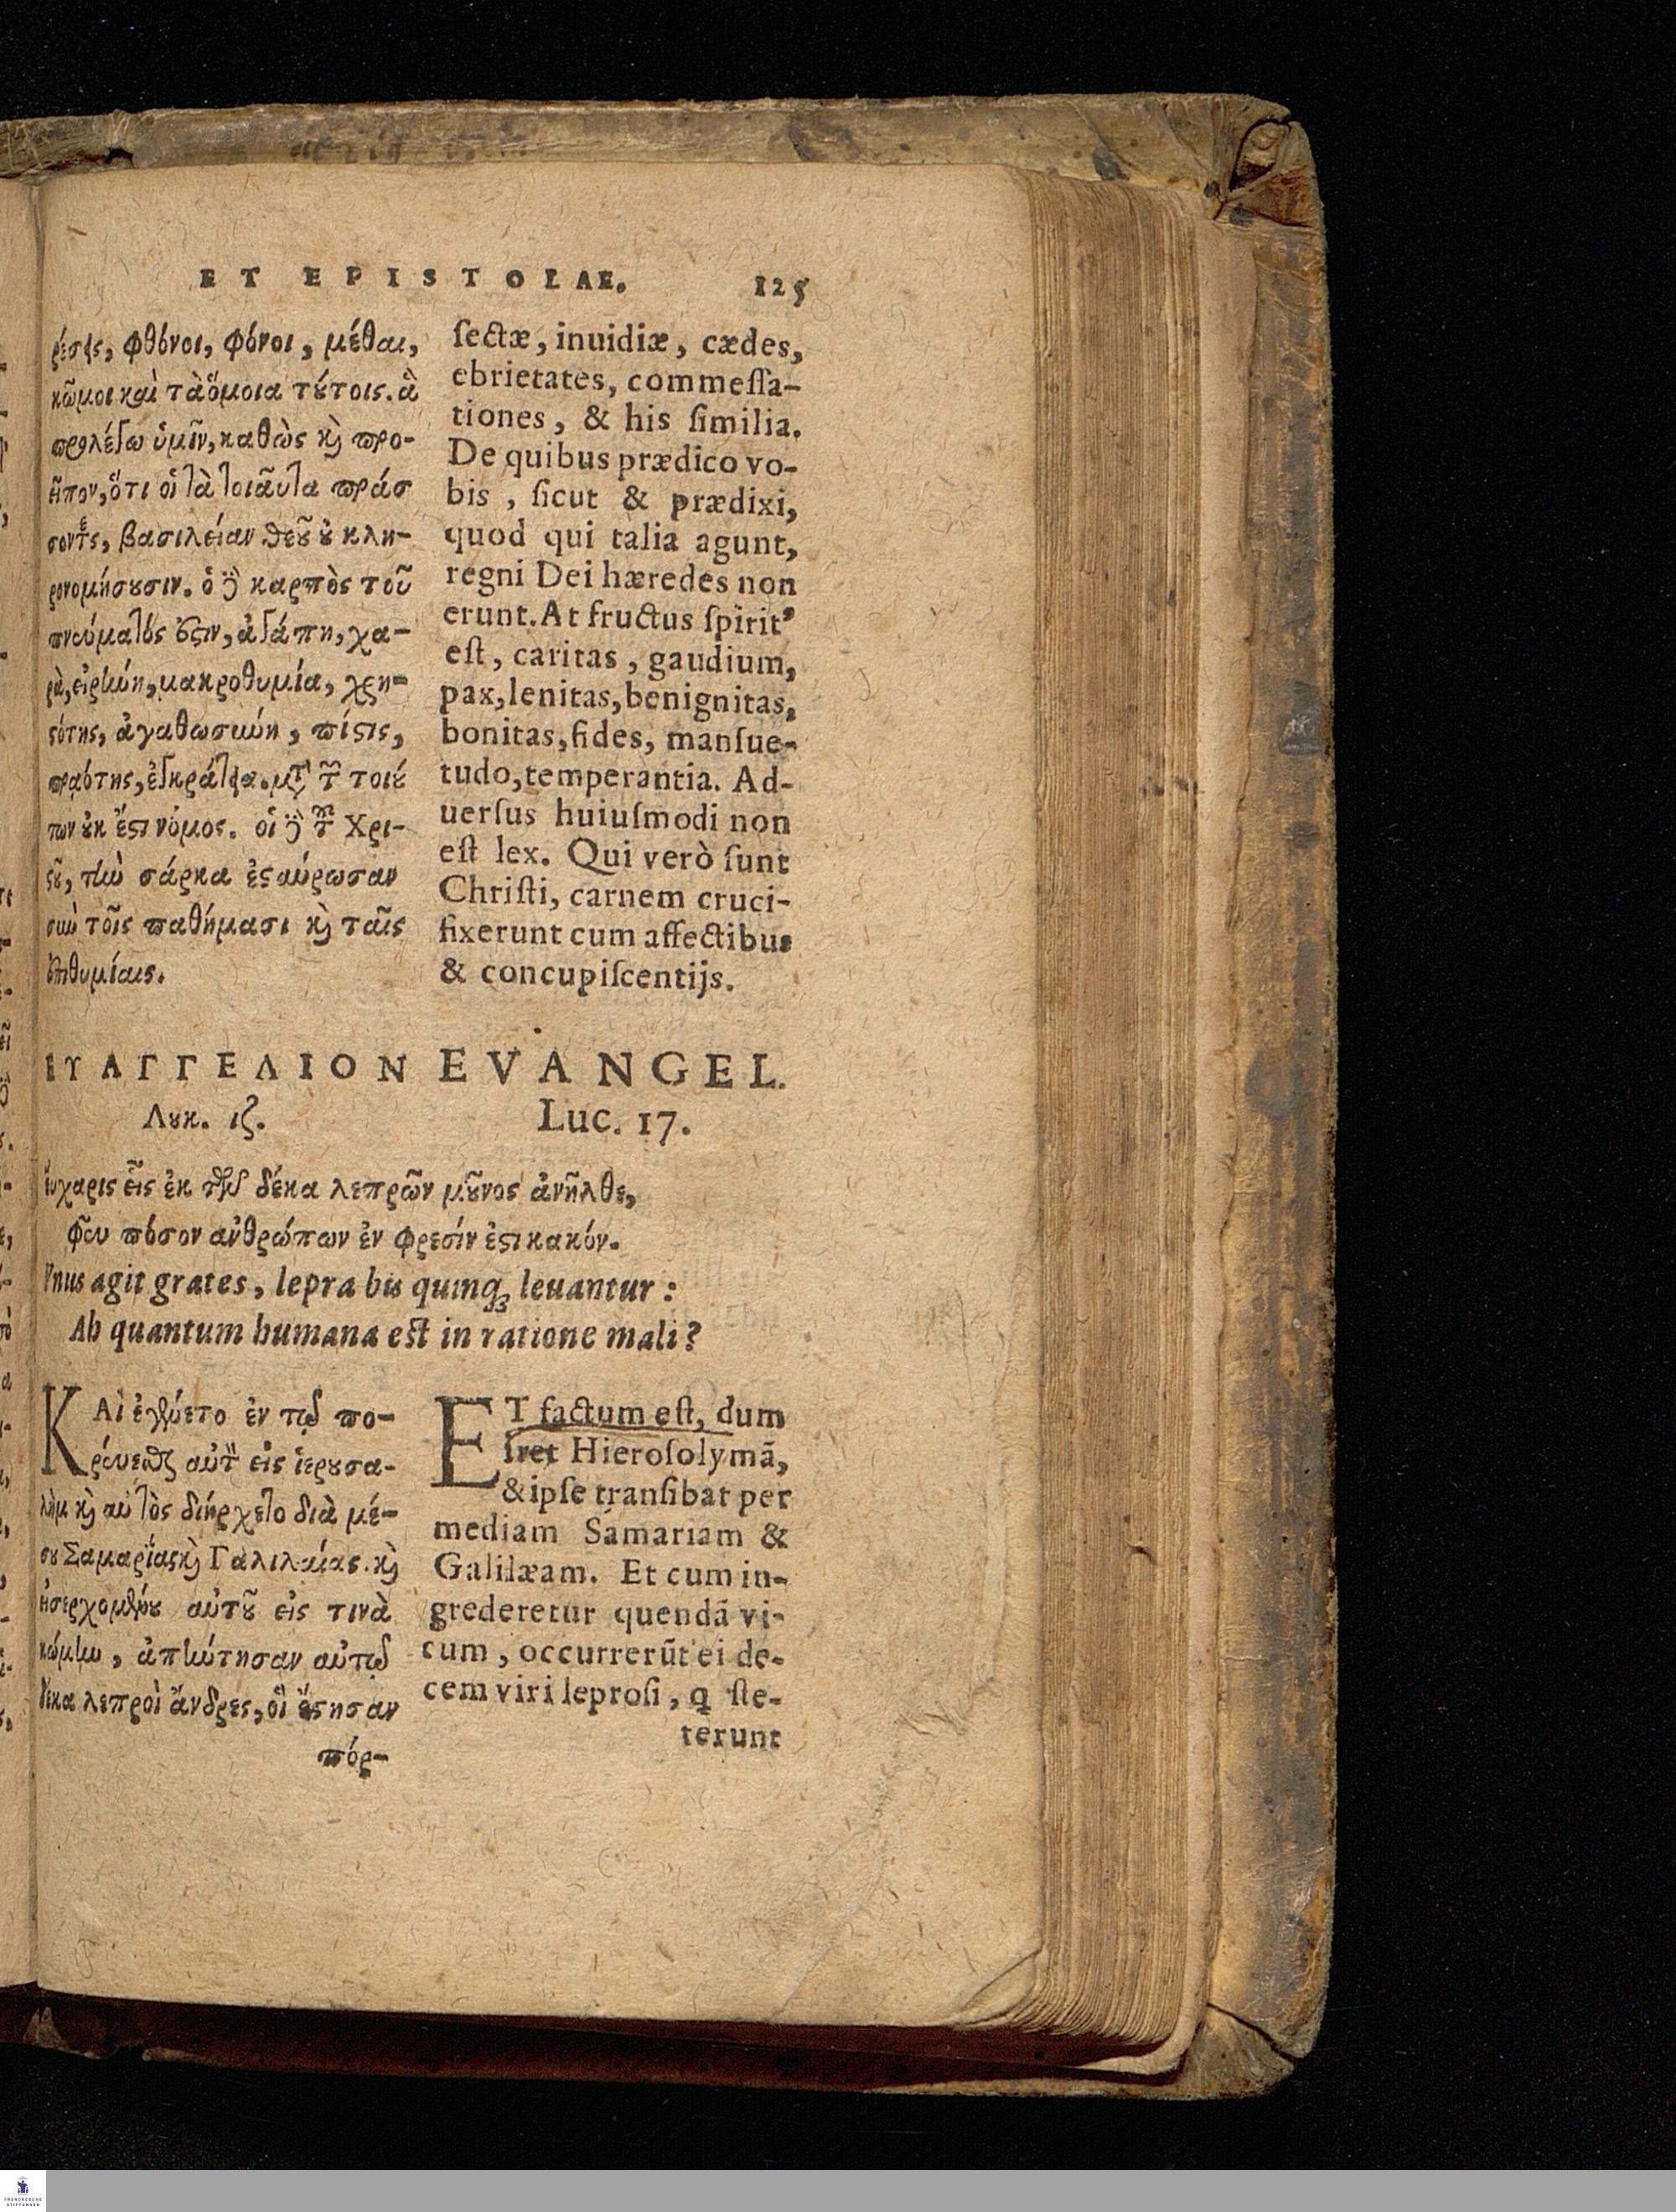 ET EPISTOLAE. 125
ρέσεις, φθόνοι, φόνοι, μέθαι,
κῶμοι καὶ τὰ ὅμοια τούτοις. ἃ
προλέγω ὑμῖν, καθὼς καὶ προ-
εῖπον, ὅτι οἱ τὰ τοιαῦτα πράσ
σοντες, βασιλείαν θεοῦ οὐ κλη-
ρονομήσουσιν. ὁ δὲ καρπὸς τοῦ
πνεύματός ἐστιν, ἀγάπη, χα-
ρὰ, εἰρήνη, μακροθυμία, χρη-
στότης, ἀγαθωσύνη, πίστις,
πραότης, ἐγκράτεια. κατὰ τῶν τοιού
των οὐκ ἔστι νόμος. οἱ δὲ τοῦ Χρι-
στοῦ, τὴν σάρκα ἐσταύρωσαν
σὺν τοῖς παθήμασι καὶ ταῖς
ἐπιθυμίαις.
ſectæ, inuidiæ, cædes,
ebrietates, commeſſa-
tiones, & his ſimilia.
De quibus prædico vo-
bis, ſicut & prædixi,
quod qui talia agunt,
regni Dei hæredes non
erunt. At fructus ſpirit⁹
eſt, caritas, gaudium,
pax, lenitas, benignitas,
bonitas, fides, manſue-
tudo, temperantia. Ad-
uerſus huiuſmodi non
eſt lex. Qui verò ſunt
Chriſti, carnem cruci-
fixerunt cum affectibus
& concupiſcentijs.
ΕΥΑΓΓΕΛΙΟΝ
Λουκ. ιζ.
EVANGEL.
Luc. 17.
εὐχαρις εἷς ἐκ τῶν δέκα λεπρῶν μοῦνος ἀνῆλθε,
φεῦ πόσον ἀνθρώπων ἐν φρεσίν ἐστι κακόν.
Vnus agit grates, lepra bis quinq; leuantur:
Ah quantum humana est in ratione mali?
ΚΑὶ ἐγένετο ἐν τῷ πο-
ρεύεσθαι αὐτὸν εἰς ἱερουσα-
λὴμ καὶ αὐτὸς διήρχετο διὰ μέ-
σου Σαμαρείας καὶ Γαλιλαίας. καὶ
εἰσερχομένου αὐτοῦ εἰς τινὰ
κώμην, ἀπήντησαν αὐτῷ
δέκα λεπροὶ ἄνδρες, οἳ ἔστησαν
πόρ-
ET factum eſt, dum
iret Hieroſolymã,
& ipſe tranſibat per
mediam Samariam &
Galilæam. Et cum in-
grederetur quendã vi-
cum, occurrerũt ei de-
cem viri leproſi, q ſte-
terunt
FRANCKESCHE
STIFTUNGEN